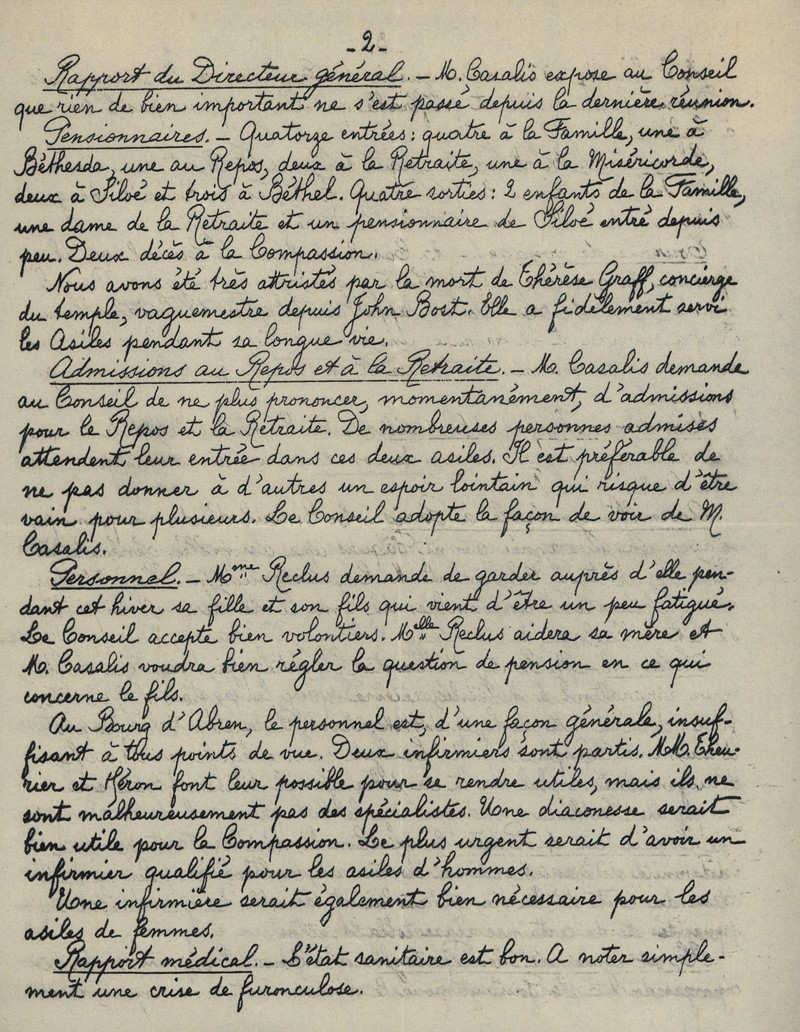 -2-
Rapport du Directeur général. - M. Casalis expose au Conseil
que rien de bien important ne s'est passé depuis la dernière réunion.
Pensionnaires. - Quatorze entrées : quatre à la Famille, une à
Béthesda, une au Repos, deux à la Retraite, une à la Miséricorde,
deux à Siloé et trois à Béthel. Quatre sorties : 2 enfants de la Famille,
une dame de la Retraite et un pensionnaire de Siloé entré depuis
peu. Deux décès à la Compassion.
Nous avons été très attristés par la mort de Thérèse Graff, concierge
du temple, vaguemestre depuis John Bost. Elle a fidèlement servi
les Asiles pendant sa longue vie.
Admissions au Repos et à la Retraite. - M. Casalis demande
au Conseil de ne plus prononcer, momentanément, d'admissions
pour le Repos et la Retraite. De nombreuses personnes admises
attendent leur entrée dans ces deux asiles. Il est préférable de
ne pas donner à d'autres un espoir lointain qui risque d'être
vain pour plusieurs. Le Conseil adopte la façon de voir de M.
Casalis.
Personnel. - Mme Reclus demande de garder auprès d'elle pen-
dant cet hiver sa fille et son fils qui vient d'être un peu fatigué.
Le Conseil accepte bien volontiers. Melle Reclus aidera sa mère et
M. Casalis voudra bien régler la question de pension en ce qui
concerne le fils.
Au Bourg d'Abren, le personnel est, d'une façon générale, insuf-
fisant à tous points de vue. Deux infirmiers sont partis. MM. Theu-
rier et Héron font leur possible pour se rendre utiles, mais ils ne
sont malheureusement pas des spécialistes. Une diaconesse serait
bien utile pour la Compassion. Le plus urgent serait d'avoir un
infirmier qualifié pour les asiles d'hommes.
Une infirmière serait également bien nécessaire pour les
asiles de femmes.
Rapport médical. - L'état sanitaire est bon. A noter simple-
ment une crise de furonculose.